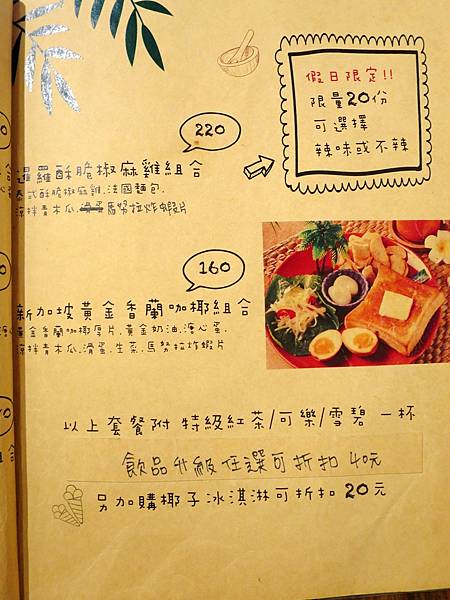 假日限定!!
限量20份
可選擇
辣味或不辣
220
暹羅酥脆椒麻雞組合
泰式酥脆椒麻雞.法國麵包.
涼拌青木瓜.馬努拉炸蝦片
160
新加坡黃金香蘭咖椰組合
黃金香蘭咖椰厚片.黃金奶油.溏心蛋.
涼拌青木瓜.滑蛋.生菜.馬努拉炸蝦片
以上套餐附 特級紅茶/可樂/雪碧 一杯
飲品升級任選可折扣 40元
另加購椰子冰淇淋可折扣 20元